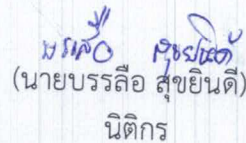 บรรลือ สุขยินดี
(นายบรรลือ สุขยินดี)
นิติกร